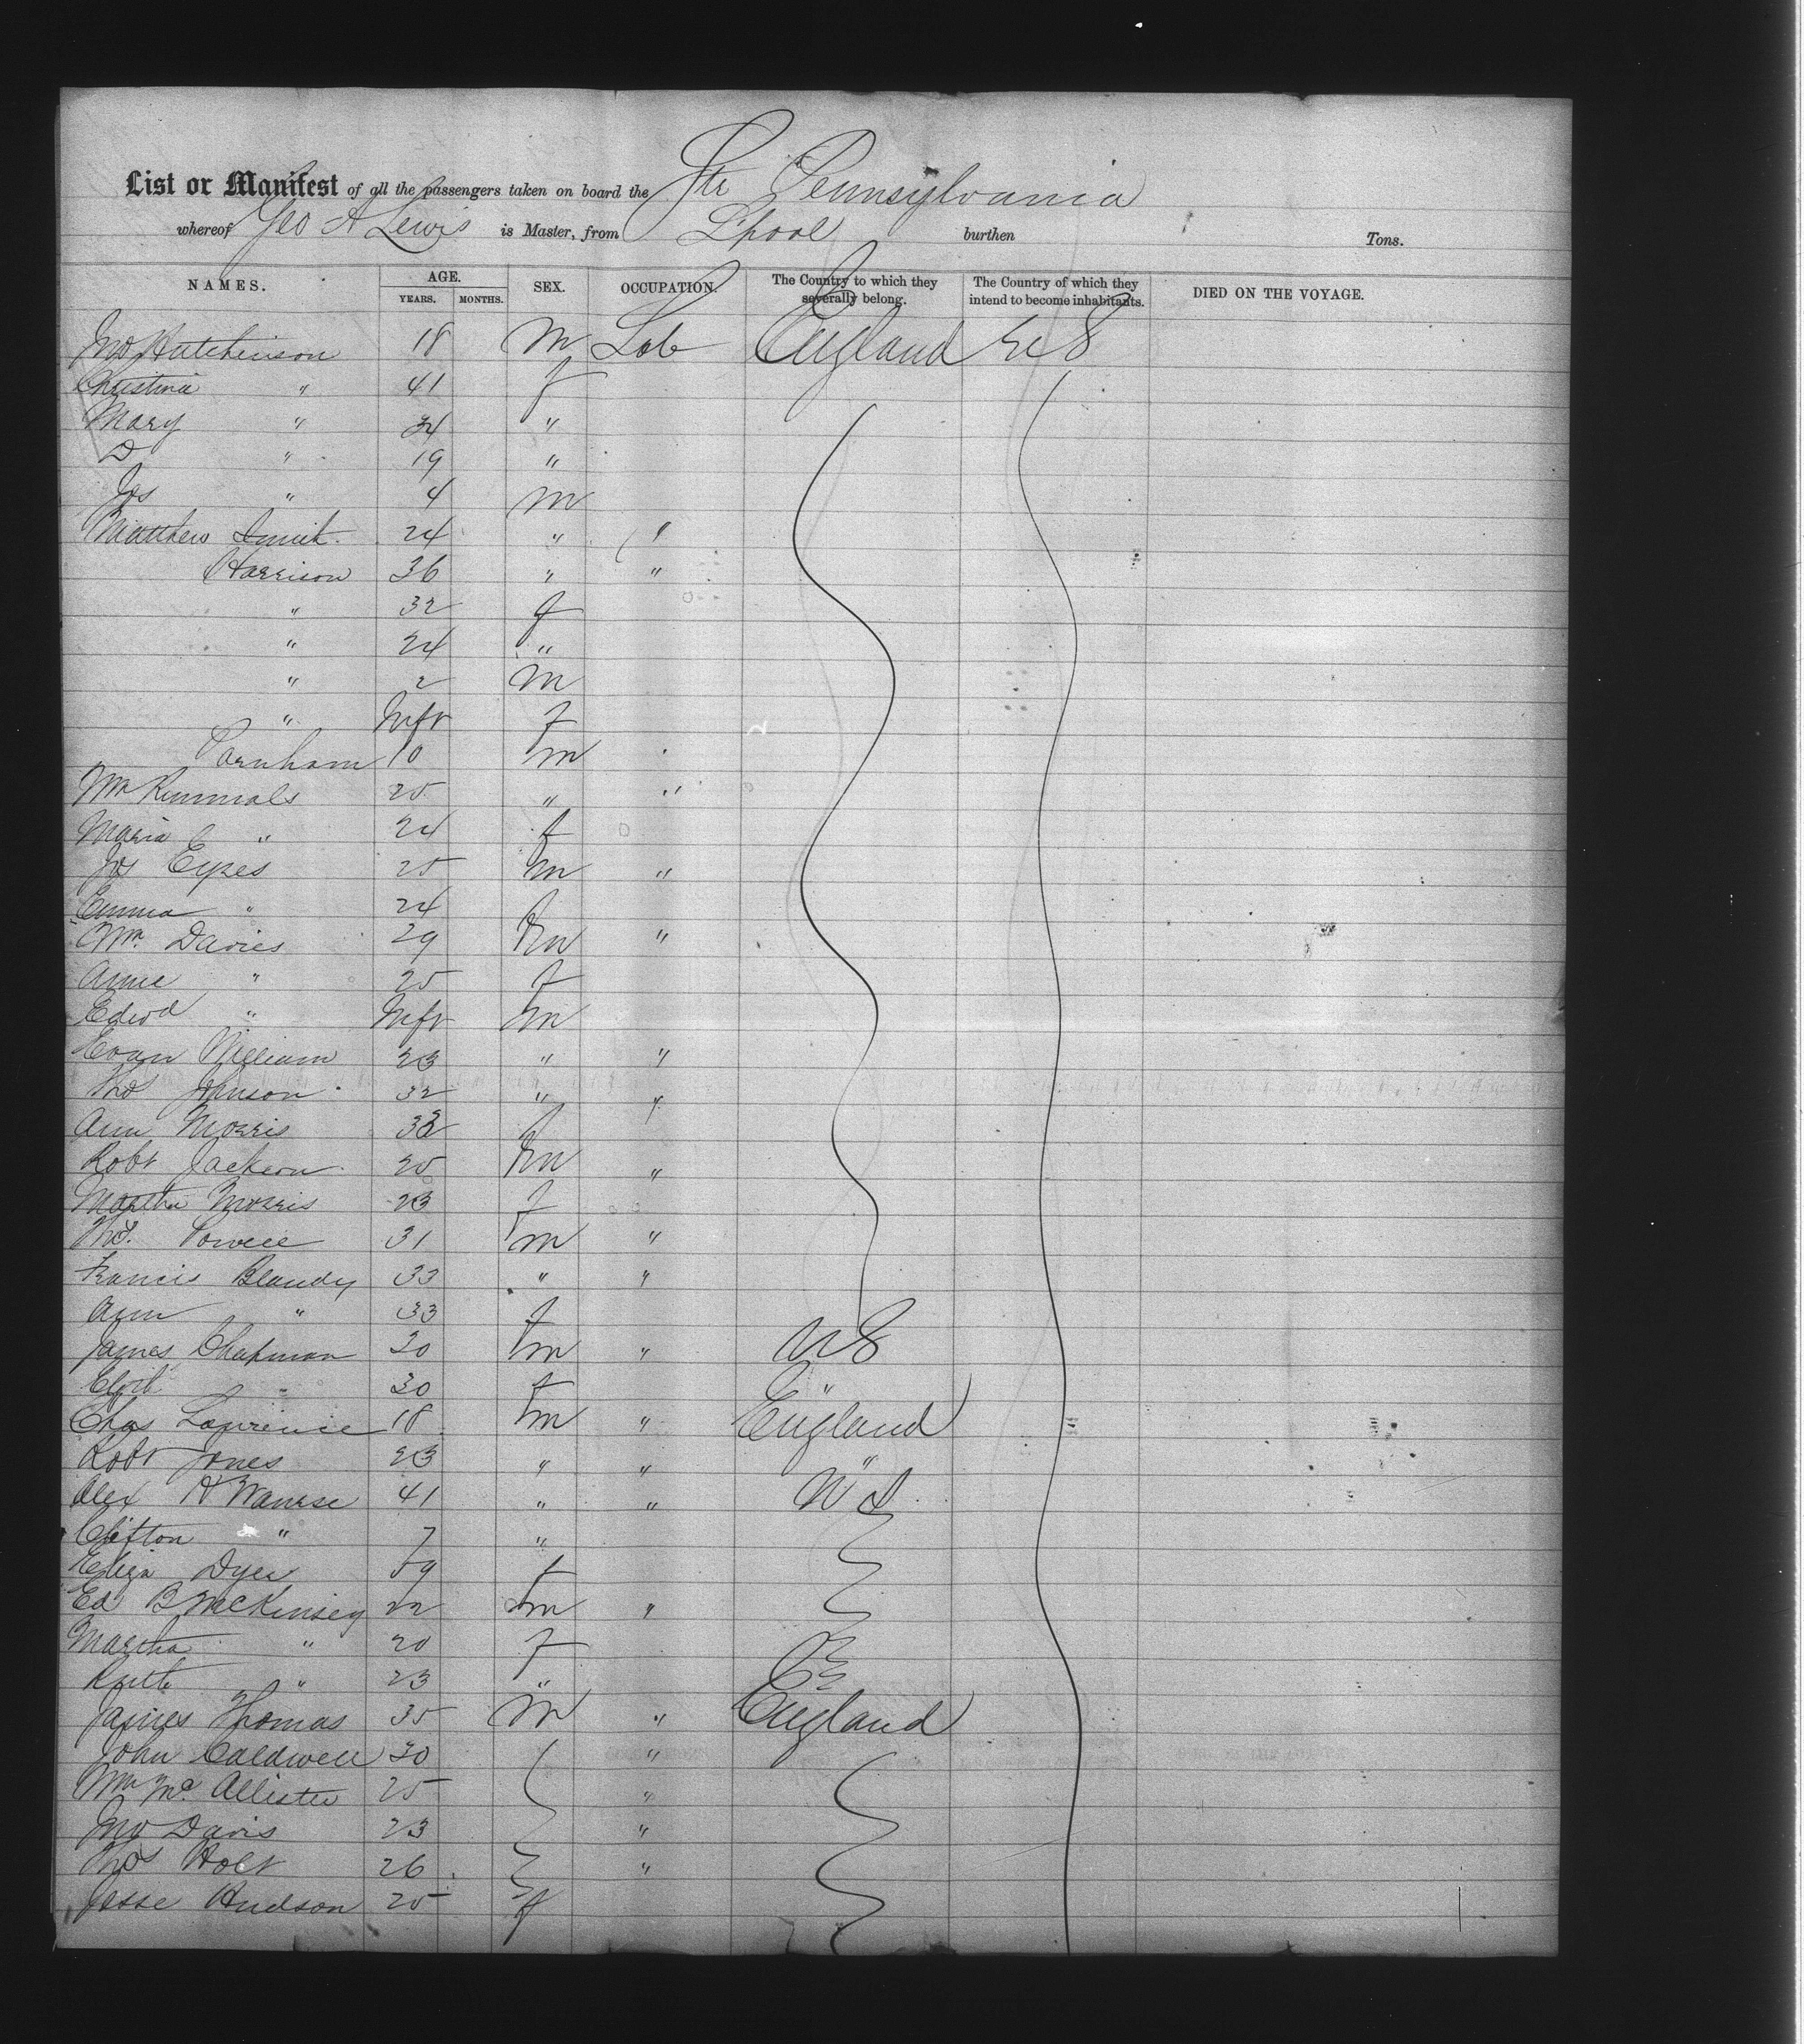 List or Manifest of all the passengers taken on board the Str Pennsylvania
whereof Geo A Lewis is Master, from Lpool burthen Tons.
NAMES. AGE. YEARS. MONTHS. SEX. OCCUPATION. The Country to which they severally belong. The Country of which they intend to become inhabitants. DIED ON THE VOYAGE.
Jno Hutchinson 18 m Lab England U S
Christina " 41 f
Mary " 34 "
D " 19 "
Jos " 4 m
Matthew 24 " "
Harrison 36 " "
" 32 f
" 24 "
" 2 m
" Inft f
Parnham 10 m
Wm 25 " "
Maria " 24 f
Jos Eyres 25 m "
Emma " 24 f
Wm Davies 29 m "
Annie " 25 f
Edwd " Inft m
Evan William 23 " "
Thos Johnson 32 " "
Ann Morris 33 f
Robt Jackson 25 m "
Martha Morris 23 f
Thos. Powell 31 m "
Francis Blandy 33 " "
Ann " 33 f
James Chapman 30 m " U S
" 30 f "
Chas Lawrence 18 m " England
Robt Jones 23 " " "
Alex H 41 " "
Clifton " 7 "
Eliza Dyer 59 f
Ed B McKinsey 22 m "
Martha " 20 f
Ruth " 23 "
James Thomas 35 m " England
John Caldwell 30 "
Wm Mc Allister 25 "
Jno Davis 23 "
Thos Holt 26 "
Jesse Hudson 25 f